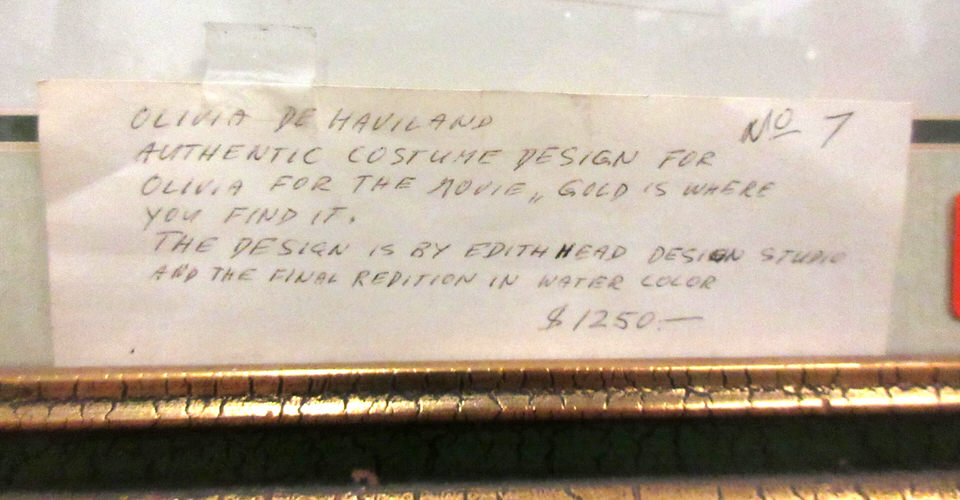 OLIVIA DE HAVILAND
No 7
AUTHENTIC COSTUME DESIGN FOR
OLIVIA FOR THE MOVIE „ GOLD IS WHERE
YOU FIND IT.
THE DESIGN IS BY EDITH HEAD DESIGN STUDIO
AND THE FINAL REDITION IN WATER COLOR
$1250.—